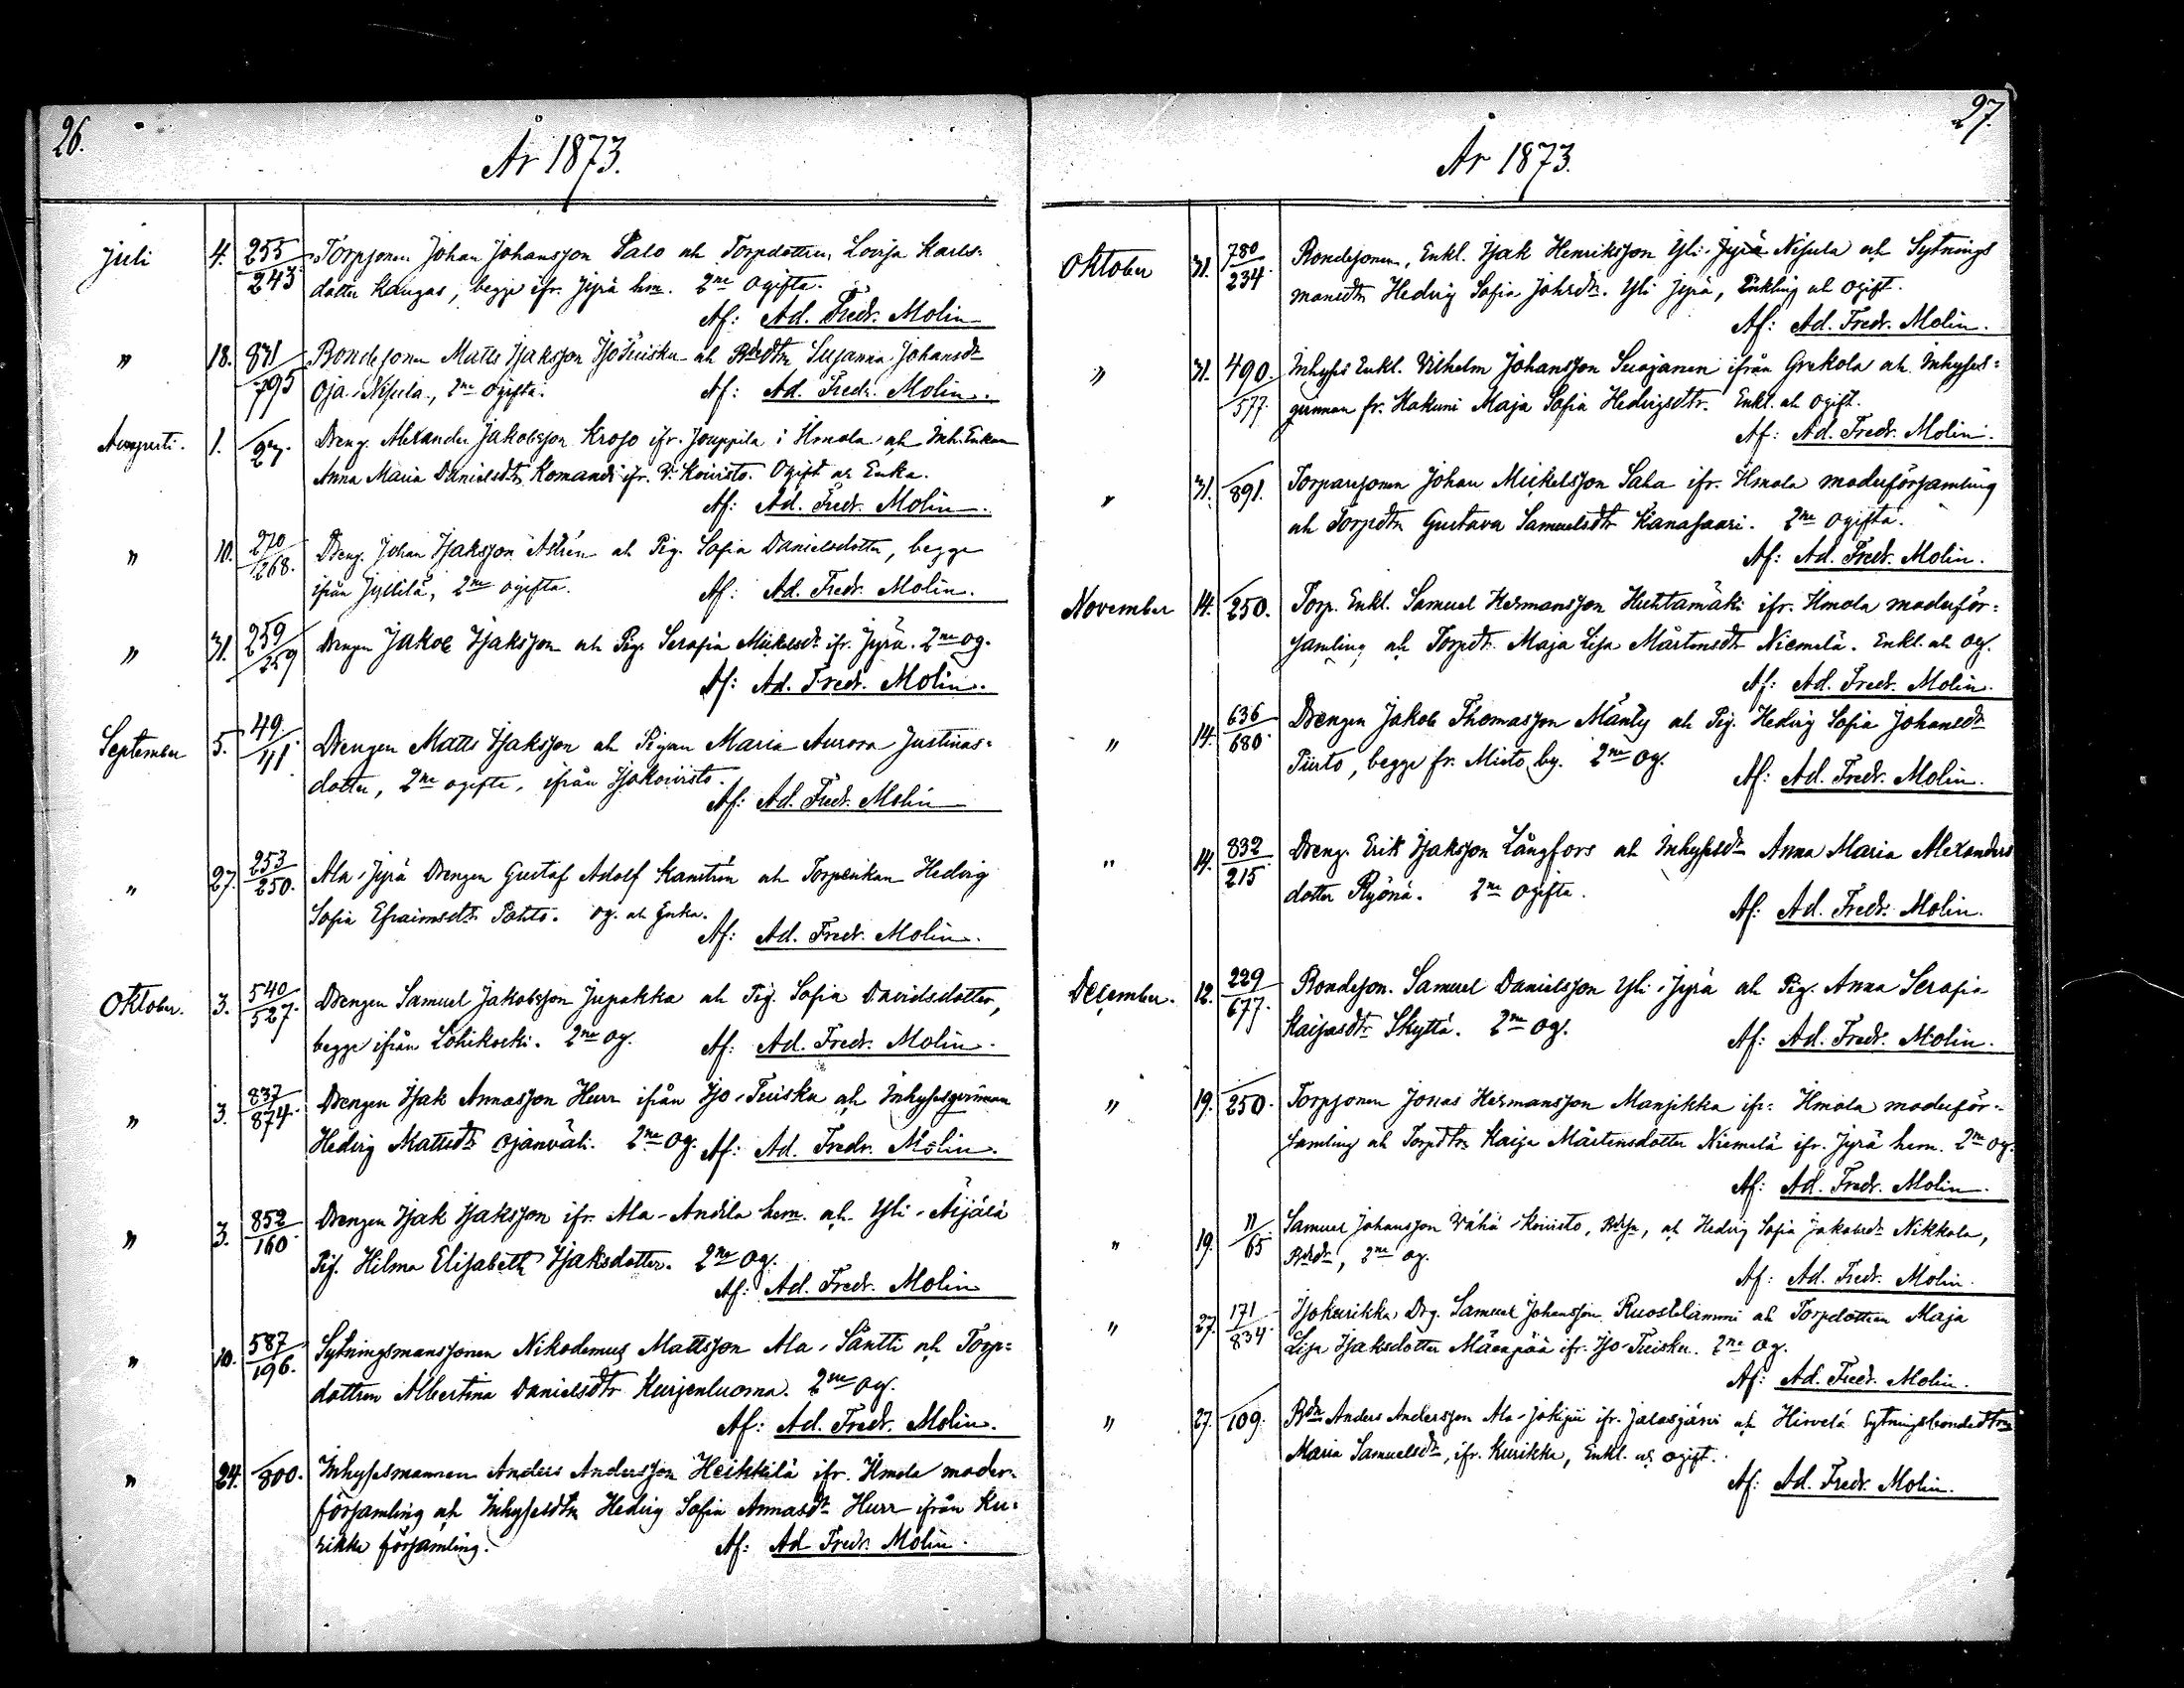 26.
År 1873.
Juli 4. 255/243 Torpsonen Johan Johansson Salo och Torpdottren Lovisa Karls-
dotter Kangas, begge ifr. Jyrä hm. 2ne ogifta.
Af: Ad. Fredr. Molin
" 18. 831/795 Bondesonen Matts Isaksson Isotuisku och Bdedtrn Susanna Johansdr
Oja-Nisula, 2ne ogifta. Af: Ad. Fredr. Molin.
Augusti. 1. /27. Dreng. Alexander Jakobsson Kroso ifr. Jouppila i Ilmola och Inh. Enkan
Anna Maria Danielsdtr Komandi ifr. V. Koivisto. Ogift och Enka.
Af: Ad. Fredr. Molin.
" 10. 270/268. Dreng. Johan Isaksson Astrén och Pig. Sofia Danielsdotter, begge
ifrån Jyllilä, 2ne ogifta. Af: Ad. Fredr. Molin.
" 31. 259/259 Drengen Jakob Isaksson och Pig. Serafia Mickelsdr ifr. Jyrä. 2ne og.
Af: Ad. Fredr. Molin.
September 5. 49/41 Drengen Matts Isaksson och Pigan Maria Aurora Justinas-
dotter, 2ne ogifte, ifrån Isokoivisto.
Af: Ad. Fredr. Molin
" 27. 253/250. Ala-Jyrä Drengen Gustaf Adolf Kanström och Torpenkan Hedvig
Sofia Efraimsdtr Pohto. og. och Enka.
Af: Ad. Fredr. Molin.
Oktober. 3. 540/527. Drengen Samuel Jakobsson Jupakka och Pig. Sofia Davidsdotter,
begge ifrån Lohikoski. 2ne og. Af: Ad. Fredr. Molin.
" 3. 837/874. Drengen Isak Annasson Hurr ifrån Iso-Tuisku och Inhysesqvinnan
Hedvig Mattsdtr Ojanväli. 2ne og. Af: Ad. Fredr. Molin.
" 3. 852/160 Drengen Isak Isaksson ifr. Ala-Andila hem. och Yli-Äijälä
Pig. Hilma Elisabeth Isaksdotter. 2ne og.
Af: Ad. Fredr. Molin
" 10. 587/196. Sytningsmanssonen Nikodemus Mattsson Ala-Säntti och Torp-
dottren Albertina Danielsdtr Kurjenluoma. 2ne og.
Af: Ad. Fredr. Molin.
" 24. /800. Inhysesmannen Anders Andersson Heikkilä ifr. Ilmola moder-
församling och Inhysesdtrn Hedvig Sofia Annasdr Hurr ifrån Ku-
rikka församling. Af: Ad Fredr. Molin.
27.
År 1873.
Oktober 31. 780/234. Bondesonen, Enkl. Isak Henriksson Yli-Jyrä Nisula och Sytnings
mansdtr Hedvig Sofia Johsdtr. Yli Jyrä, Enkling och ogift.
Af: Ad. Fredr. Molin.
" 31. 490./577. Inhyses Enkl. Vilhelm Johansson Suojanen ifrån Grekola och Inhyses-
qvinnan fr. Hakuni Maja Sofia Hedvigsdtr. Enkl. och ogift.
Af: Ad. Fredr. Molin.
" 31. /891. Torparesonen Johan Mickelsson Saha ifr. Ilmola moderförsamling
och Torpdtrn Gustava Samuelsdtr Kanasaari. 2ne ogifta.
Af: Ad. Fredr. Molin.
November 14. /250. Torp. Enkl. Samuel Hermansson Huhtamäki ifr. Ilmola moderför-
samling och Torpdtr. Maja Lisa Mårtensdtr Niemelä. Enkl. och og.
Af: Ad. Fredr. Molin.
" 14. 636/680. Drengen Jakob Thomasson Mänty och Pig. Hedvig Sofia Johansdtr
Piirto, begge fr. Mieto by. 2ne og.
Af: Ad. Fredr. Molin.
" 14. 832/215. Dreng. Erik Isaksson Långfors och Inhysesdr Anna Maria Alexanders
dotter Ryönä. 2ne ogifta.
Af: Ad. Fredr. Molin.
December. 12. 229/677. Bondeson. Samuel Danielsson Yli-Jyrä och Pig. Anna Serafia
Kaisasdtr Skyttä. 2ne og. Af: Ad. Fredr. Molin.
" 19. /250. Torpsonen Jonas Hermansson Mansikka ifr. Ilmola moderför-
samling och Torpdtrn Kaisa Mårtensdotter Niemelä ifr. Jyrä hem. 2ne og.
Af: Ad. Fredr. Molin.
" 19. 11/65. Samuel Johansson Vähä-Koivisto, Bdsn, och Hedvig Sofia Jakobsdr Nikkola,
Bdedr, 2ne og.
Af: Ad. Fredr. Molin.
" 27. 171/834. Isokurikka, Drg. Samuel Johansson Ruostelammi och Torpdottren Maja
Lisa Isaksdotter Mäenpää ifr. Iso-Tuisku. 2ne og.
Af: Ad. Fredr. Molin.
" 27. /109. Bdn Anders Andersson Ala-Jokipii ifr. Jalasjärvi och Hirvelä Sytningsbondedtrn
Maria Samuelsdr, ifr. Kurikka, Enkl. och ogift.
Af: Ad. Fredr. Molin.